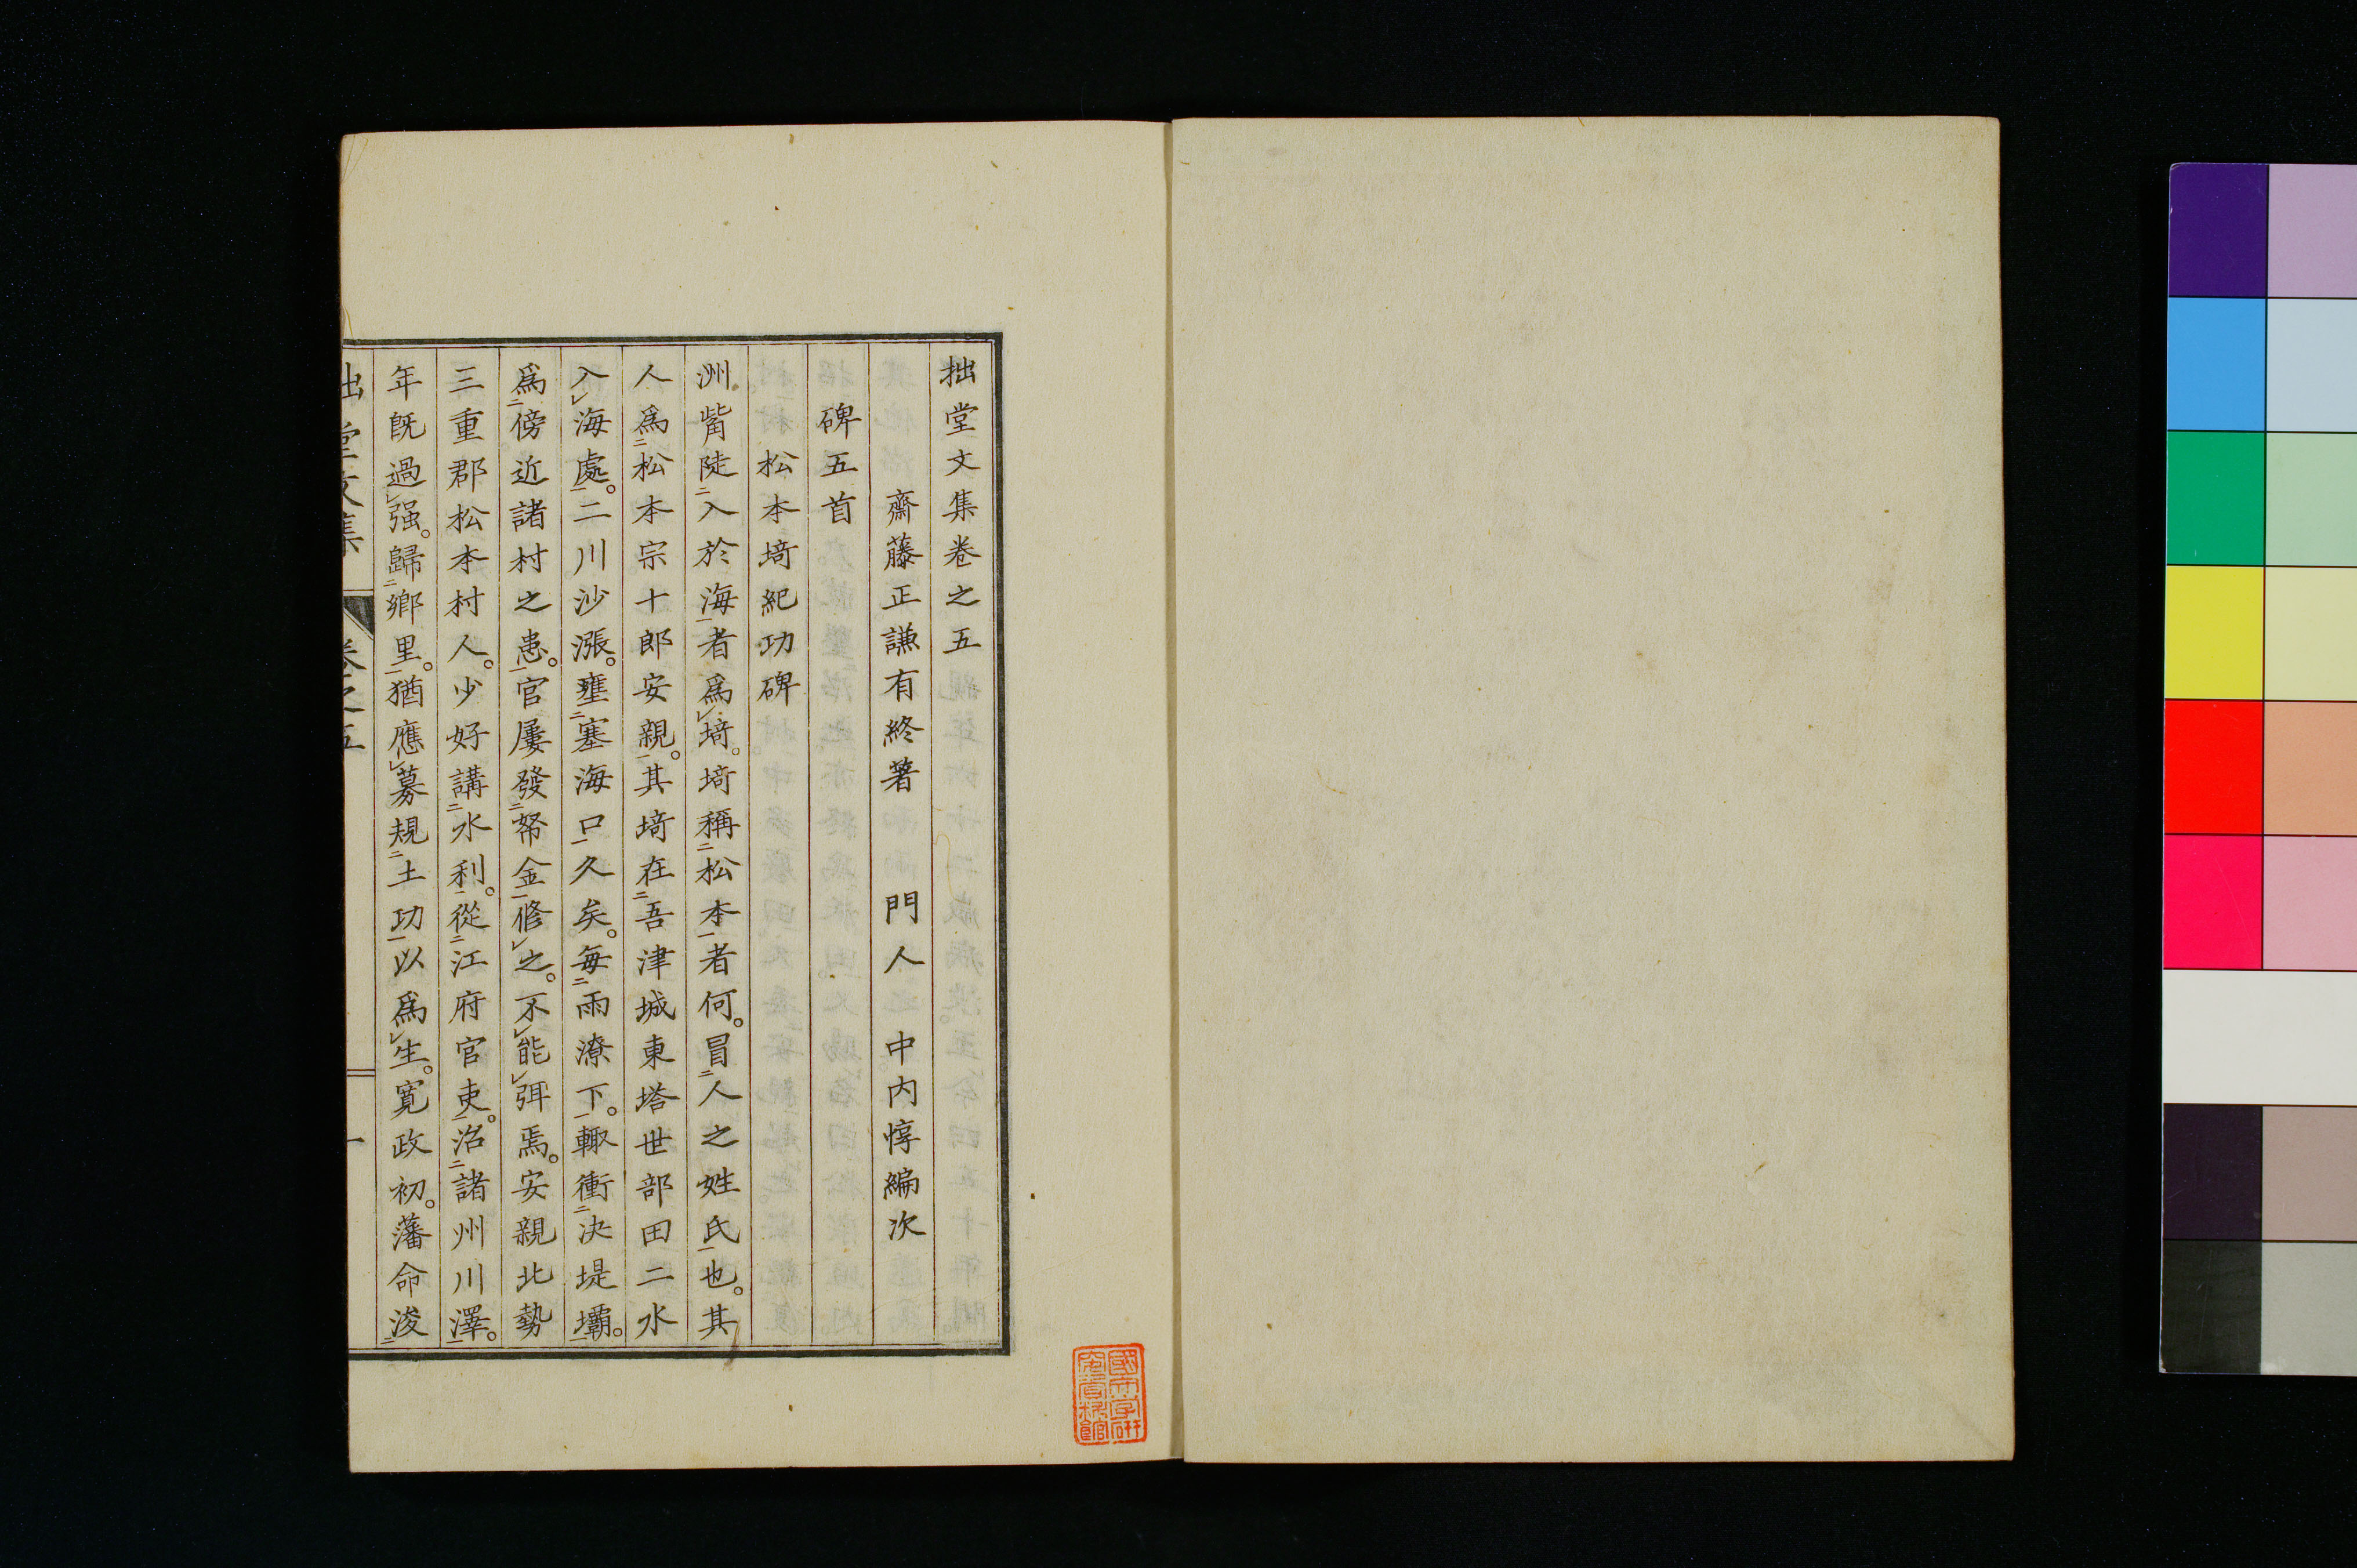 拙堂文集卷之五
齋藤正謙有終著　門人　中内惇編次
碑五首
松本埼紀功碑
洲觜陡入於海者爲埼。埼稱松本者何。冒人之姓氏也。其
人爲松本宗十郎安親。其埼在吾津城東塔世部田二水
入海處。二川沙漲。壅塞海口久矣。每雨潦下。輙衝决堤壩。
爲傍近諸村之患。官屢發帑金修之。不能弭焉。安親北勢
三重郡松本村人。少好講水利。從江府官吏。治諸州川澤。
年既過强。歸鄉里。猶應募規土功以爲生。寬政初。藩命浚
拙堂文集　卷之五　一